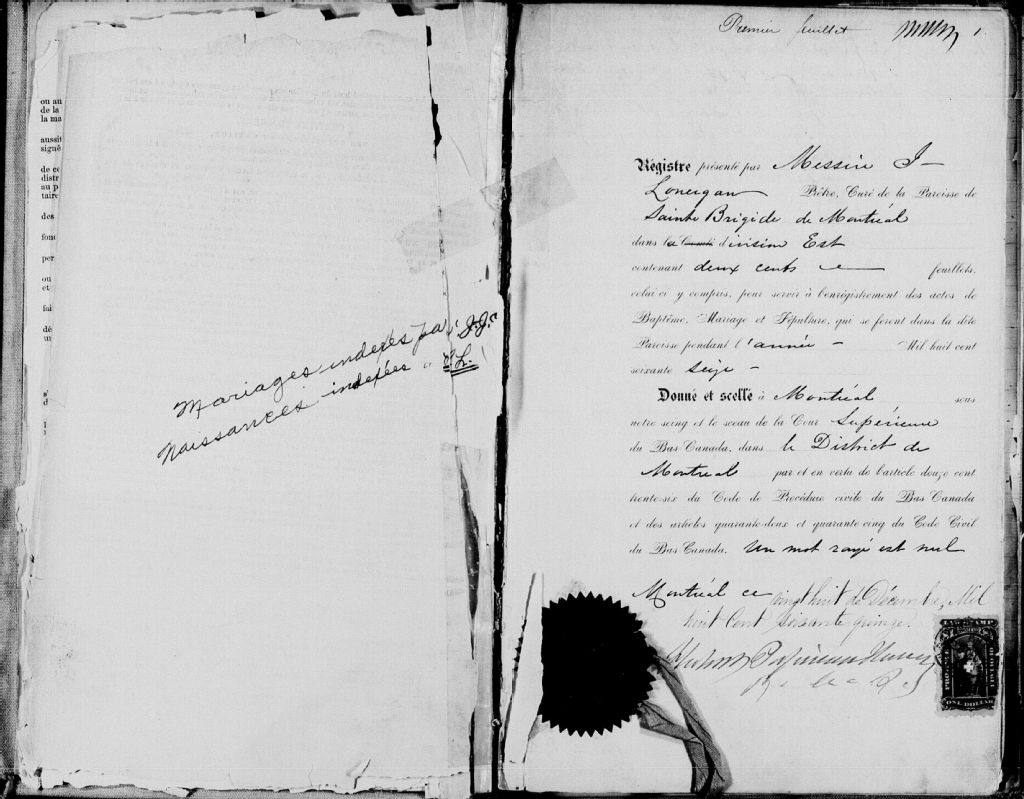 ou au
de la
la ma
aussit
signé
de ce
distr
au p
taire
des
fonc
per
ou
et
fai
dé
Mariages indexés par J.J.
Naissances indexées " L.
Premier feuillet 1
Régistre présenté par Messire J
Lonergan Prêtre, Curé de la Paroisse de
Sainte Brigide de Montréal
dans la Comté division Est
contenant deux cents feuillets,
celui-ci y compris, pour servir à l'enrégistrement des actes de
Baptême, Mariage et Sépulture, qui se feront dans la dite
Paroisse pendant l'année Mil huit cent
soixante seize
Donné et scellé à Montréal sous
notre seing et le sceau de la Cour Supérieure
du Bas-Canada, dans le District de
Montréal par et en vertu de l'article douze cent
trente-six du Code de Procédure civile du Bas-Canada
et des articles quarante-deux et quarante-cinq du Code Civil
du Bas-Canada. Un mot rayé est nul
Montréal ce vingt huit de Décembre, Mil
huit Cent soixante quinze.
LAW STAMP
PROVINCE OF QUEBEC
ONE DOLLAR